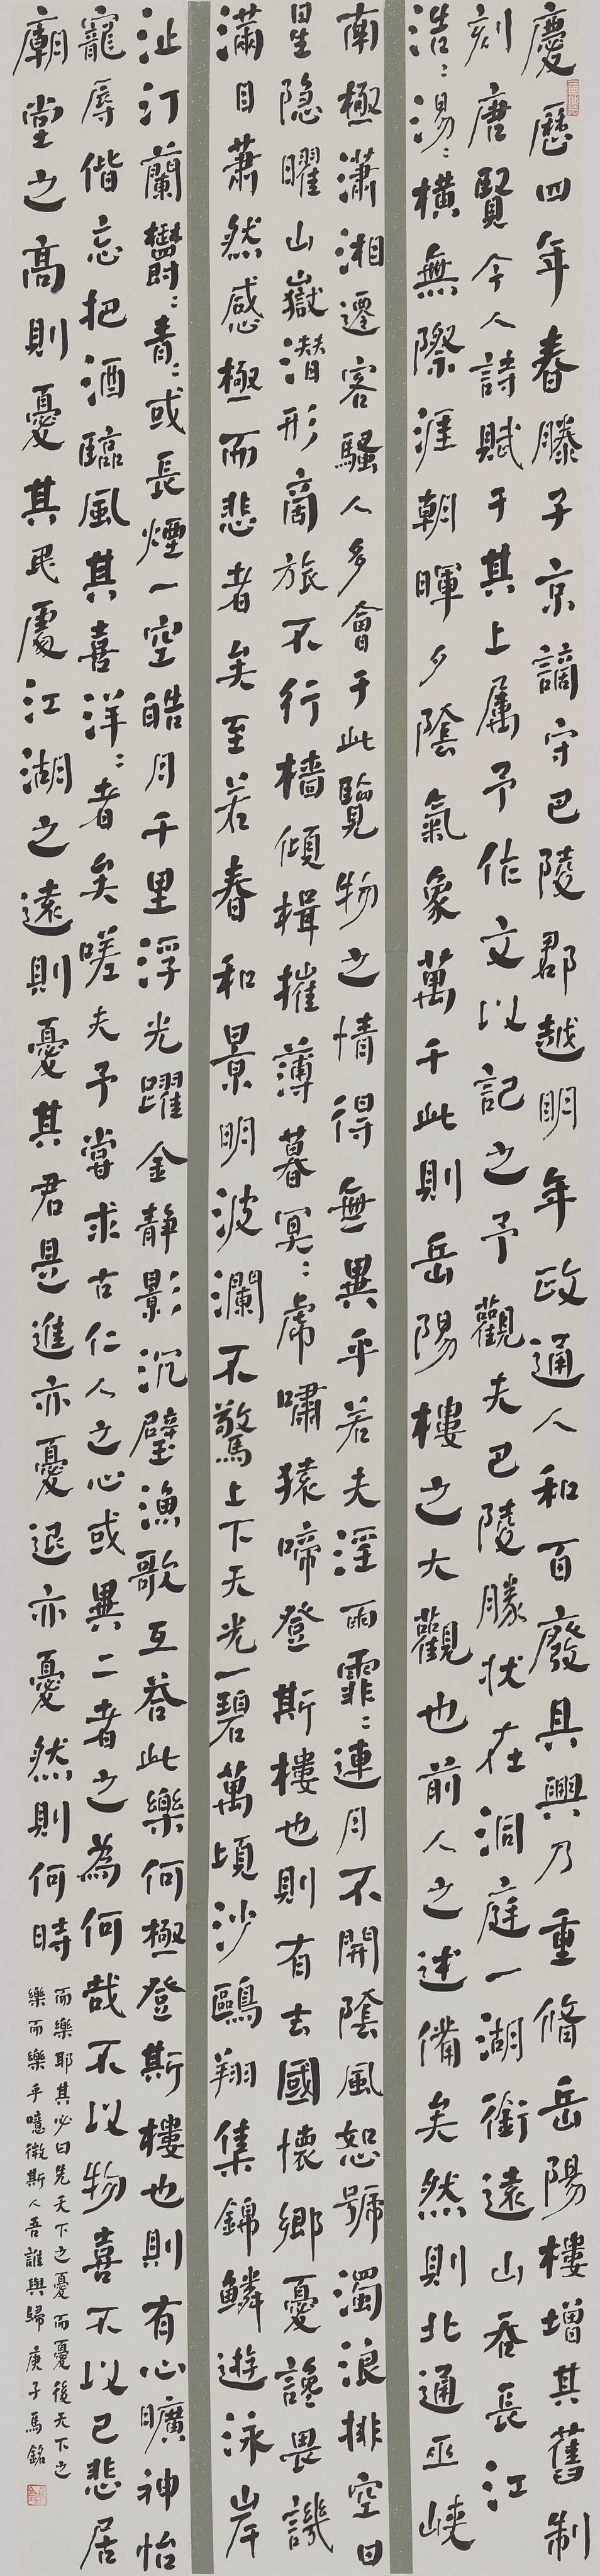 慶曆四年春滕子京謫守巴陵郡越明年政通人和百廢具興乃重脩岳陽樓增其舊制
刻唐賢今人詩賦于其上屬予作文以記之予觀夫巴陵勝狀在洞庭一湖銜遠山吞長江
浩々湯々橫無際涯朝暉夕陰氣象萬千此則岳陽樓之大觀也前人之述備矣然則北通巫峽
南極瀟湘遷客騷人多會于此覽物之情得無異乎若夫淫雨霏々連月不開陰風怒號濁浪排空日
星隱曜山嶽潛形商旅不行檣傾楫摧薄暮冥々虎嘯猿啼登斯樓也則有去國懷鄉憂讒畏譏
滿目蕭然感極而悲者矣至若春和景明波瀾不驚上下天光一碧萬頃沙鷗翔集錦鱗遊泳岸
芷汀蘭鬱々青々或長煙一空皓月千里浮光躍金靜影沉璧漁歌互答此樂何極登斯樓也則有心曠神怡
寵辱偕忘把酒臨風其喜洋々者矣嗟夫予嘗求古仁人之心或異二者之為何哉不以物喜不以己悲居
廟堂之高則憂其民處江湖之遠則憂其君是進亦憂退亦憂然則何時
而樂耶其必曰先天下之憂而憂後天下之
樂而樂乎噫微斯人吾誰與歸 庚子馬銘